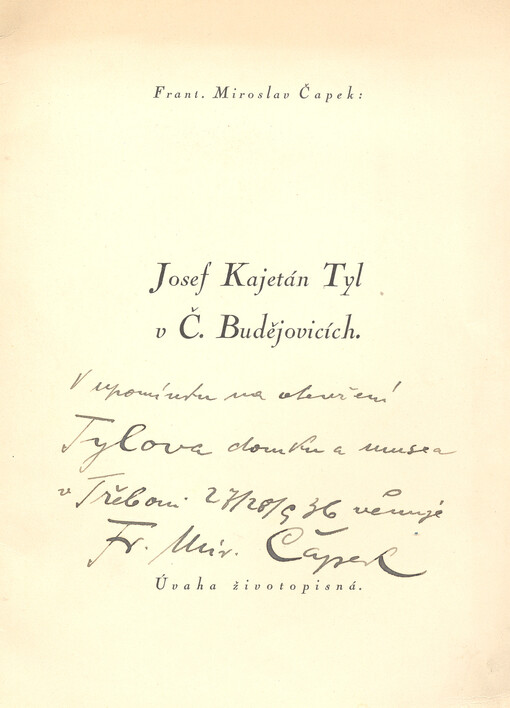 Frant. Miroslav Čapek:
Josef Kajetán Tyl
v Č. Budějovicích.
V upomínku na otevření
Tylova domku a musea
v Třeboni 27/28/9 36 věnuje
Fr. Mir. Čapek
Úvaha životopisná.